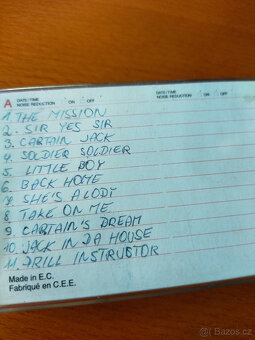 A DATE/TIME NOISE REDUCTION ON OFF DATE/TIME NOISE REDUCTION ON OFF
1. THE MISSION
2. SIR YES SIR
3. CAPTAIN JACK
4. SOLDIER SOLDIER
5. LITTLE BOY
6. BACK HOME
7. SHE'S A LADY
8. TAKE ON ME
9. CAPTAIN'S DREAM
10. JACK IN DA HOUSE
11. DRILL INSTRUCTOR
Made in E.C.
Fabriqué en C.E.E.
sbazos.cz